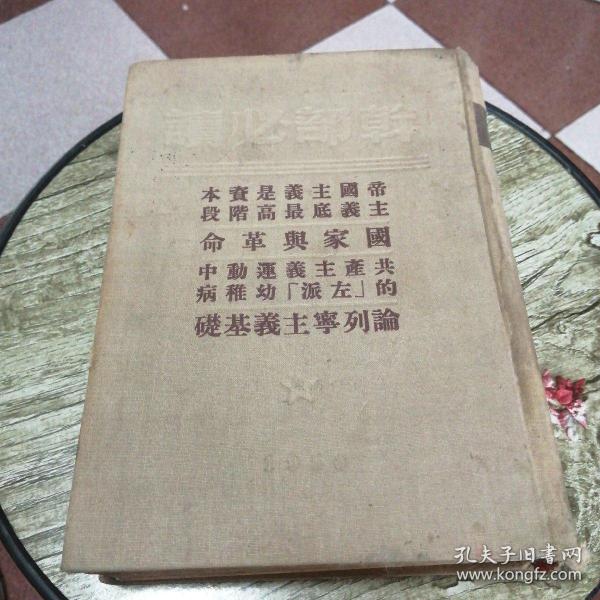 幹部必讀
帝國主義是資本
主義底最高階段
國家與革命
共產主義運動中
的「左派」幼稚病
論列寧主義基礎
孔夫子旧书网
www.kongfz.com